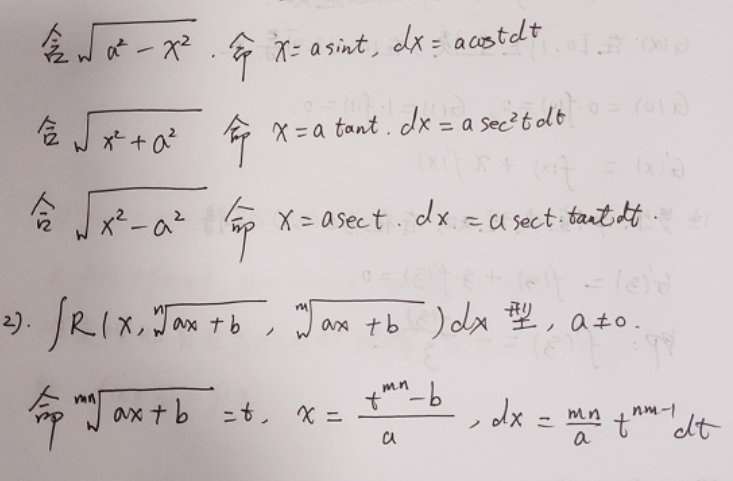 含√(a² − x²). 命 x = a sint, dx = a cost dt
含√(x² + a²) 命 x = a tant. dx = a sec²t dt
含√(x² − a²) 命 x = a sect. dx = a sect·tant dt.
2). ∫R(x, ⁿ√(ax + b), ᵐ√(ax + b))dx 型, a≠0.
命 ᵐⁿ√(ax + b) = t, x = (t^{mn} − b)/a, dx = (mn/a) t^{nm−1} dt